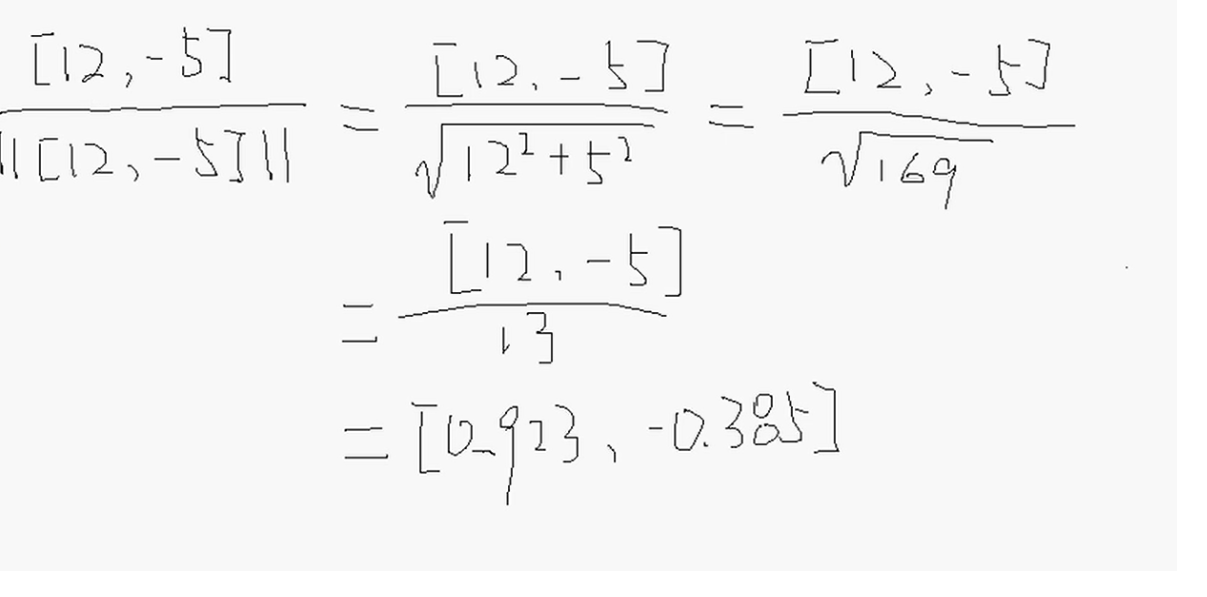 [12, -5] / ||[12, -5]|| = [12, -5] / √(12² + 5²) = [12, -5] / √169
= [12, -5] / 13
= [0.923, -0.385]